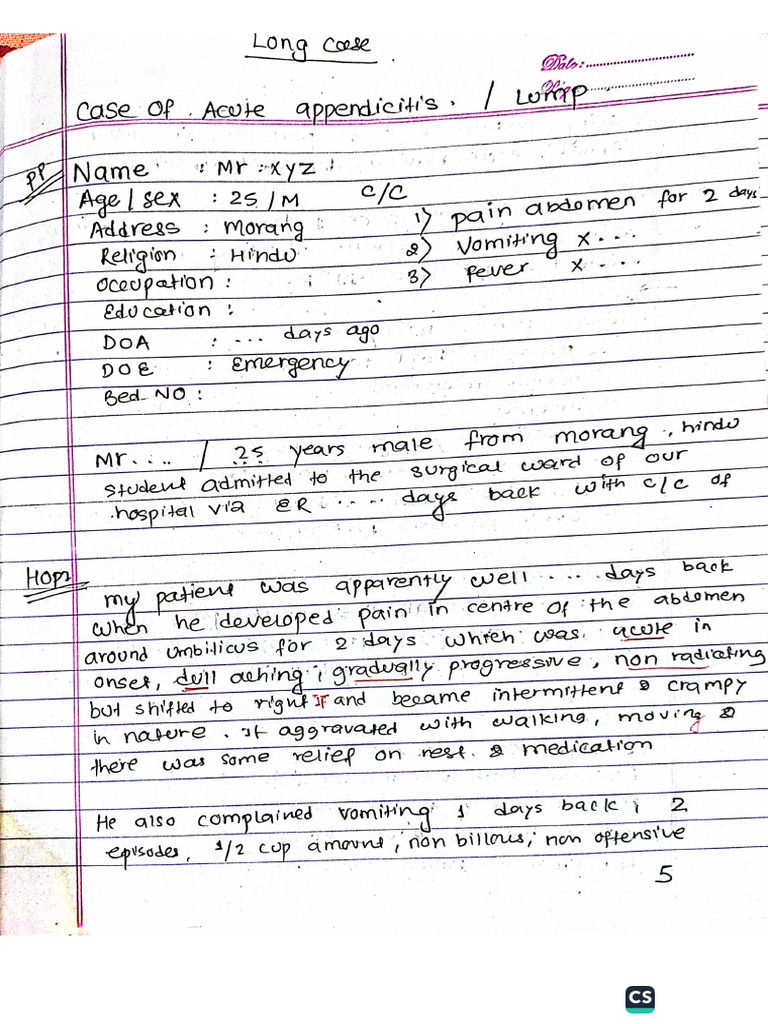 Long case.
Date:
case of Acute appendicitis. / Lump
PP Name : Mr. xyz :
Age / sex : 25 / M C/C
Address : Morang 1) pain abdomen for 2 days
Religion : Hindu 2) Vomiting x ....
Occupation : 3) Fever x ....
Education :
DOA : ... days ago
DOE : Emergency
Bed NO :
Mr.... / 25 years male from morang, hindu
student admitted to the surgical ward of our
hospital via ER ..... days back with c/c of
HOPI my patient was apparently well .... days back
when he developed pain in centre of the abdomen
around umbilicus for 2 days which was acute in
onset, dull aching ; gradually progressive, non radiating
but shifted to right IF and became intermittent & crampy
in nature. It aggravated with walking, moving &
there was some relief on rest & medication
He also complained vomiting 1 days back ; 2
episodes, 1/2 cup amount, non billous, non offensive
5
CS